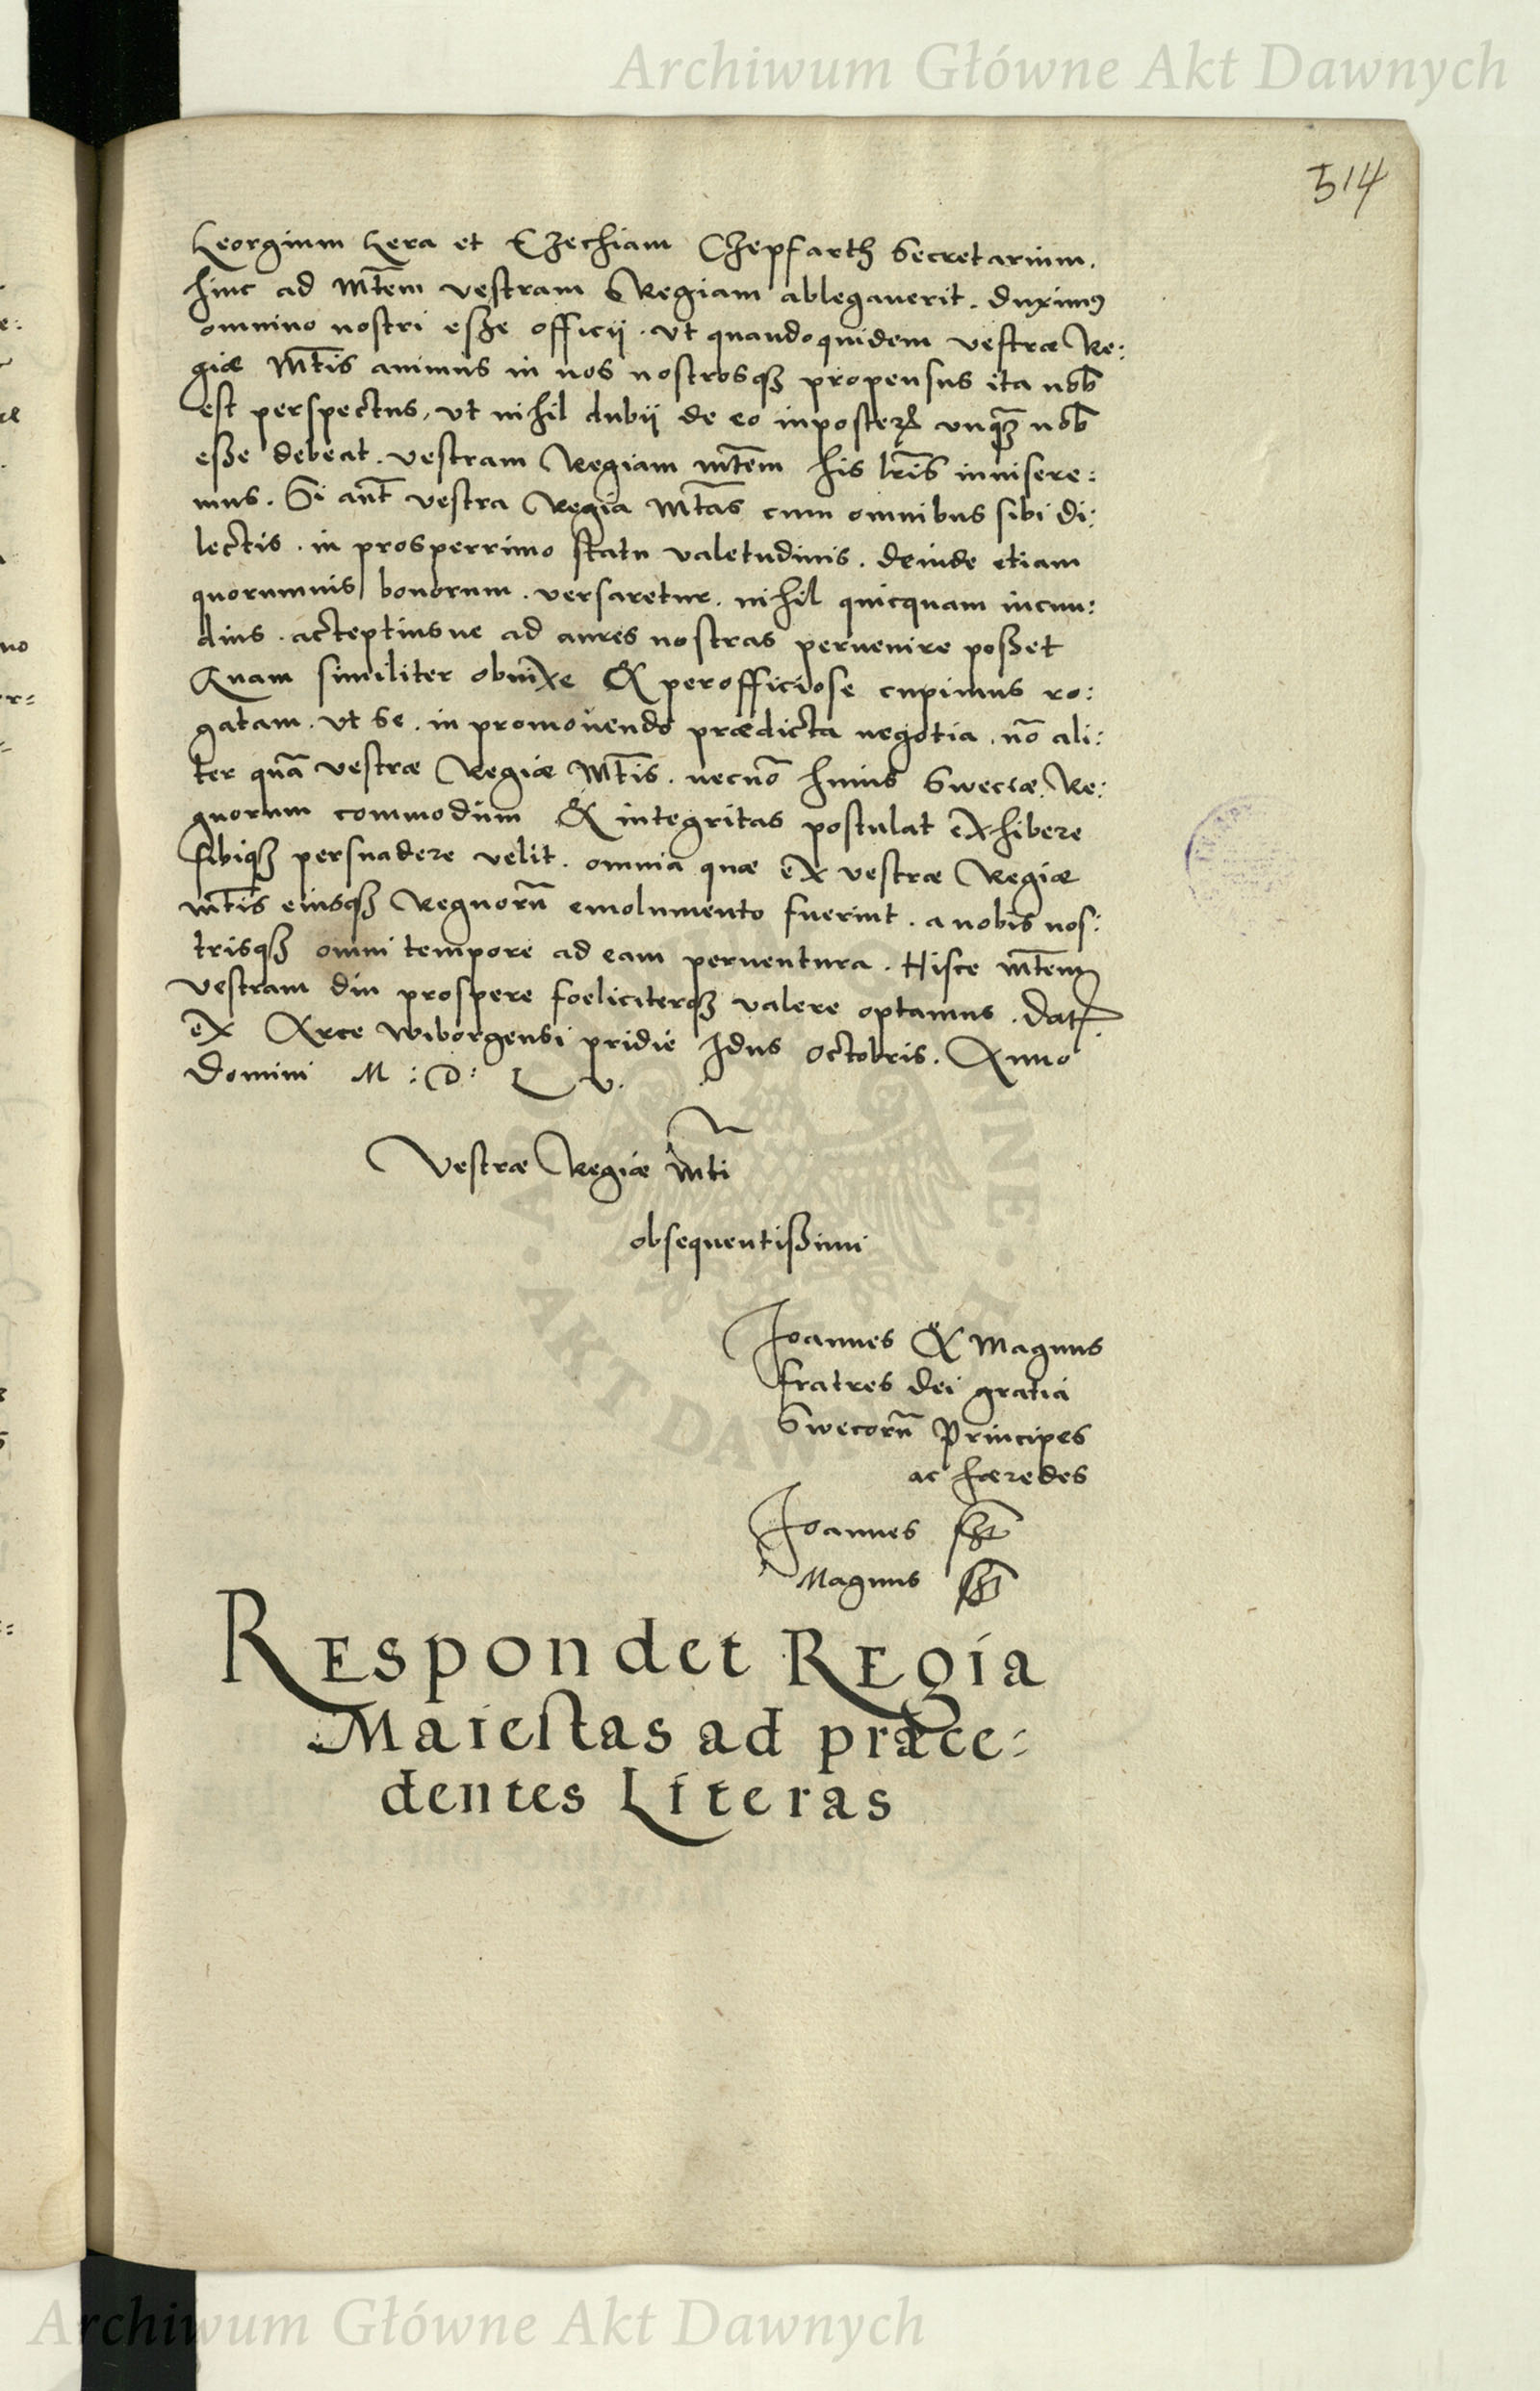 Archiwum Główne Akt Dawnych
514
Georgium Gera et Ezechiam Czepfarth Secretarium.
hinc ad Mtem vestram Regiam ablegauerit. duximus
omnino nostri eße officij. vt quandoquidem vestræ Re:
giæ Mtis animus in nos nostrosqꝫ propensus ita nob
est perspectus, vt nihil dubij de eo inposterꝝ vnqꝫ nob
eße debeat. vestram Regiam mtem his lris inuisere:
mus. Si aut vestra Regia Mtas cum omnibus sibi di:
lectis. in prosperrimo statu valetudinis. deinde etiam
quorumuis bonorum. versaretur. nihil quicquam iucun:
dius. acceptiusue ad aures nostras peruenire poßet
Quam similiter obnixe & perofficiose cupimus ro:
gatam. vt se. in promouendo prædicta negotia. nō ali:
ter quā vestræ Regiæ Mtis. necnō huius Sweciæ Re:
gnorum commodum & integritas postulat exhibere
sibiqꝫ persuadere velit. omnia quæ ex vestræ Regiæ
mtis eiusqꝫ Regnorū emolumento fuerint. a nobis nos:
trisqꝫ omni tempore ad eam peruentura. Hisce mtem
vestram diu prospere foeliciterqꝫ valere optamus. Dat
ex Arce Wiborgensi pridie Idus Octobris. Anno
Domini M : D : L V.
Vestræ Regiæ Mti
obsequentißimi
Joannes & Magnus
fratres dei gratia
Swecorū Principes
ac hæredes
Joannes sst
Magnus sst
REspondet REgia
Maiestas ad præce:
dentes Literas
AKT DAW
Archiwum Główne Akt Dawnych